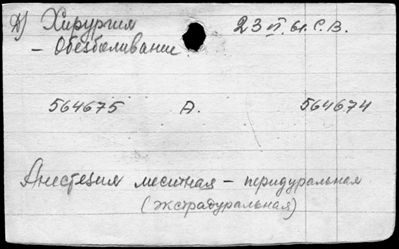 Д) Хирургия 23 VI. 61. С.В.
– Обезболивание
564675 А. 564674
Анестезия местная – перидуральная
(экстрадуральная)